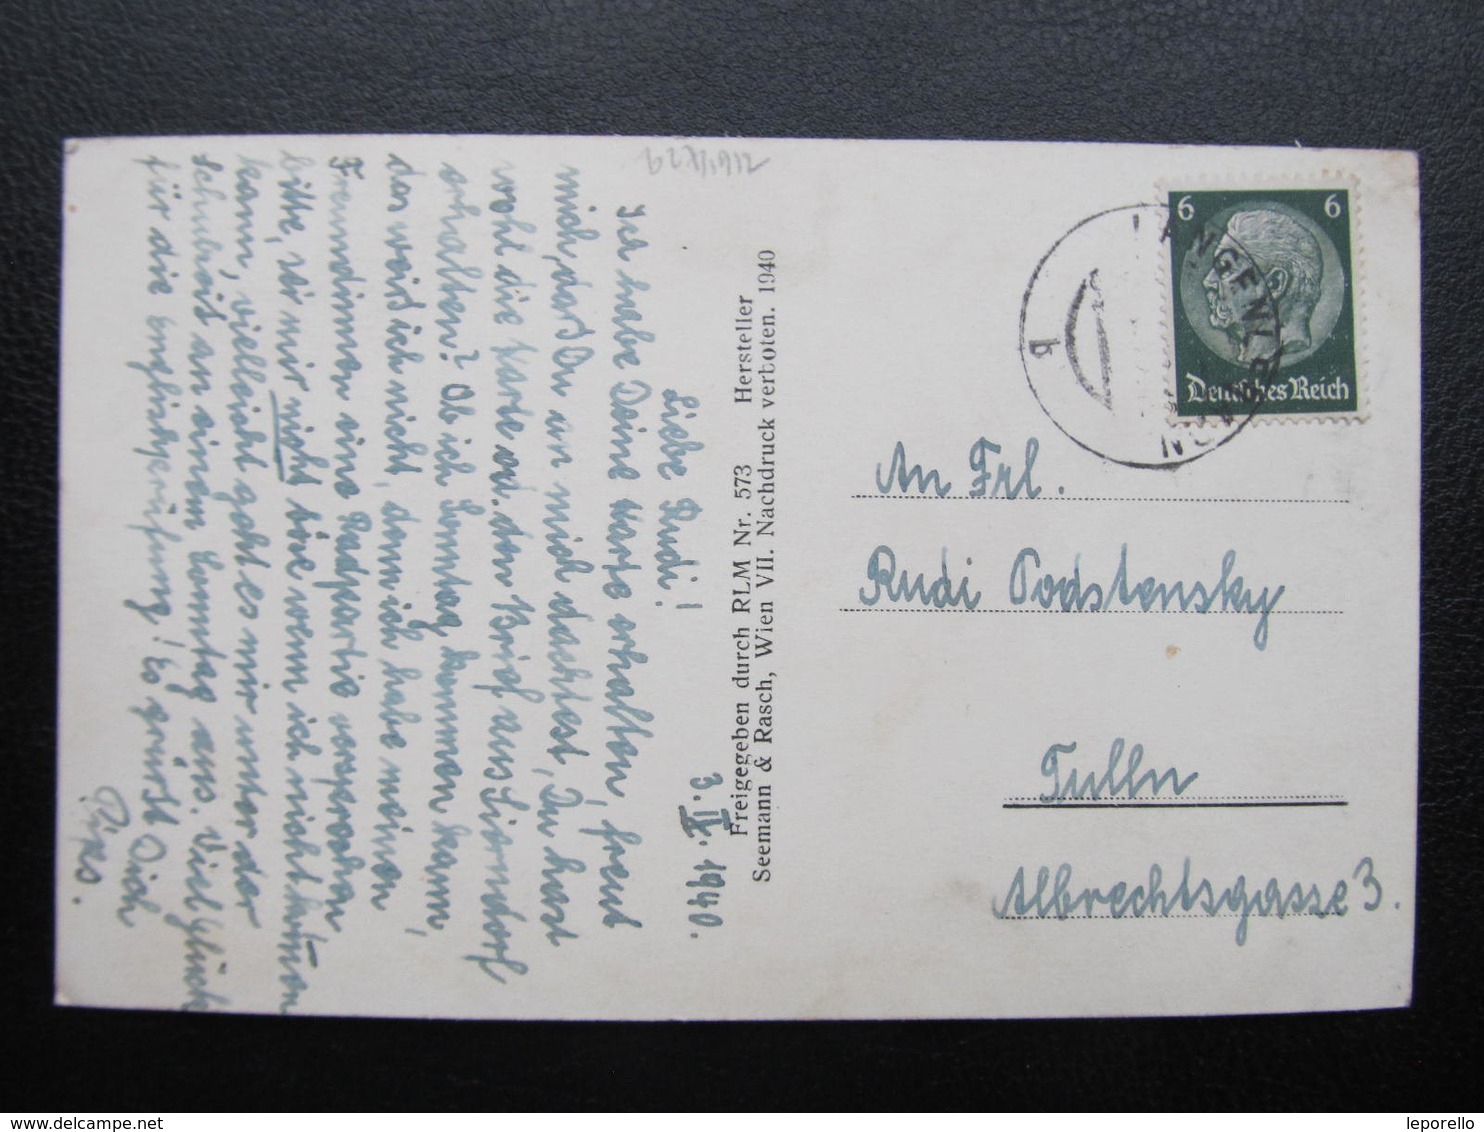 3. IX. 1940.
Liebe Rudi!
Ich habe Deine Karte erhalten, freut
mich, das Du an mich dachtest, Du hast
wohl die Karte od. den Brief aus
erhalten? Ob ich Sonntag kommen kann,
das weis ich nicht, denn ich habe meinen
Freundinnen eine Radpartie versprochen
bitte, sei mir nicht böse wenn ich nicht kommen
kann, vielleicht geht es mir unter der
aus. Viel Glück
für die
Es grüsst Dich
Freigegeben durch RLM Nr. 573 Hersteller
Seemann & Rasch, Wien VII. Nachdruck verboten. 1940
6 6
Deutsches Reich
LANGENLEBARN
b
An Frl.
Rudi Podstensky
Tulln
Albrechtsgasse 3.
delcampe.net
leporello